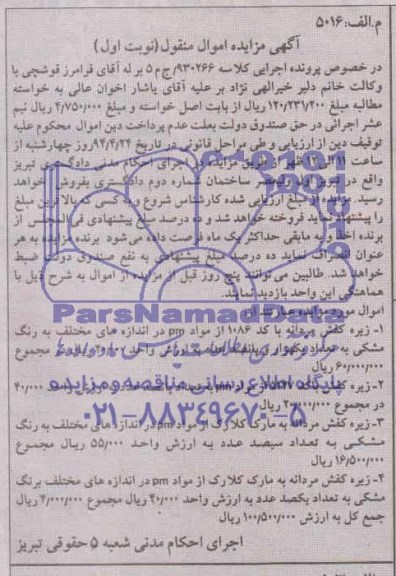 م.الف:۵۰۱۶
آگهی مزایده اموال منقول(نوبت اول)
در خصوص پرونده اجرایی کلاسه ۹۳۰۲۶۶/ج م ۵ بر له آقای فرامرز قوشچی با
وکالت خانم دلیر خیرالهی نژاد بر علیه آقای یاشار اخوان عالی به خواسته
مطالبه مبلغ ۱۲۰/۲۳۱/۲۰۰ ریال از بابت اصل خواسته و مبلغ ۴/۷۵۰/۰۰۰ ریال نیم
عشر اجرائی در حق صندوق دولت بعلت عدم پرداخت دین اموال محکوم علیه
توقیف دین از ارزیابی و طی مراحل قانونی در تاریخ ۹۴/۴/۲۴ روز چهارشنبه از
ساعت ۱۱ الی ۱۲ ظهر از طریق مزایده در اجرای احکام مدنی دادگستری تبریز
واقع در تبریز ساختمان شماره دوم دادگستری بفروش خواهد
رسید. مزایده از مبلغ ارزیابی شده کارشناس شروع و به کسی که بالاترین مبلغ
را پیشنهاد نماید فروخته خواهد شد و ده درصد مبلغ پیشنهادی فی المجلس از
برنده اخذ و به مابقی حداکثر یک ماه فرصت داده می شود برنده مزایده به هر
عنوان انصراف نماید ده درصد مبلغ پیشنهادی به نفع صندوق دولت ضبط
خواهد شد. طالبین می توانند پنج روز قبل از مزایده از اموال به شرح ذیل با
هماهنگی این واحد بازدید نمایند.
اموال مورد مزایده عبارتند از:
۱- زیره کفش مردانه با کد ۱۰۸۶ از مواد pm در اندازه های مختلف به رنگ
مشکی به تعداد یکهزار و پانصد عدد به ارزش واحد ۴۰/۰۰۰ ریال مجموع
۶۰/۰۰۰/۰۰۰ ریال
۲- زیره کفش واحد ۴۰/۰۰۰
در مجموع ۲۰/۰۰۰/۰۰۰ ریال
۳-زیره کفش مردانه به مارک کلارک از مواد pm در اندازه های مختلف به رنگ
مشکی به تعداد سیصد عدد به ارزش واحد ۵۵/۰۰۰ ریال مجموع
۱۶/۵۰۰/۰۰۰ ریال
۴- زیره کفش مردانه به مارک کلارک از مواد pm در اندازه های مختلف برنگ
مشکی به تعداد یکصد عدد به ارزش واحد ۴۰/۰۰۰ ریال مجموع ۴/۰۰۰/۰۰۰ ریال
جمع کل به ارزش ۱۰۰/۵۰۰/۰۰۰ ریال
اجرای احکام مدنی شعبه ۵ حقوقی تبریز
ParsNamadData
پایگاه اطلاع رسانی مناقصه و مزایده
۰۲۱-۸۸۳۴۹۶۷۰-۵